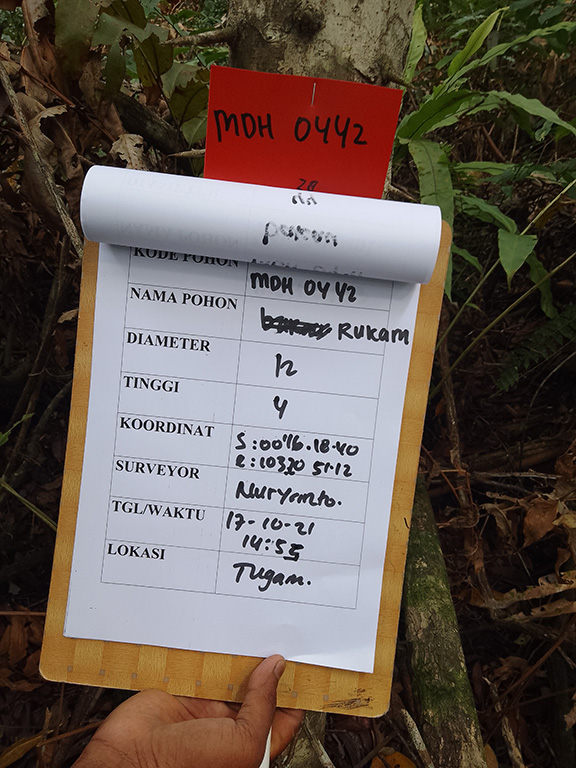 MDH 0442
KODE POHON MDH 0442
NAMA POHON Rukam
DIAMETER 12
TINGGI 4
KOORDINAT S:00°16.18.40
51.12
SURVEYOR Nuryemto.
TGL/WAKTU 17-10-21
14:55
LOKASI Tugam.